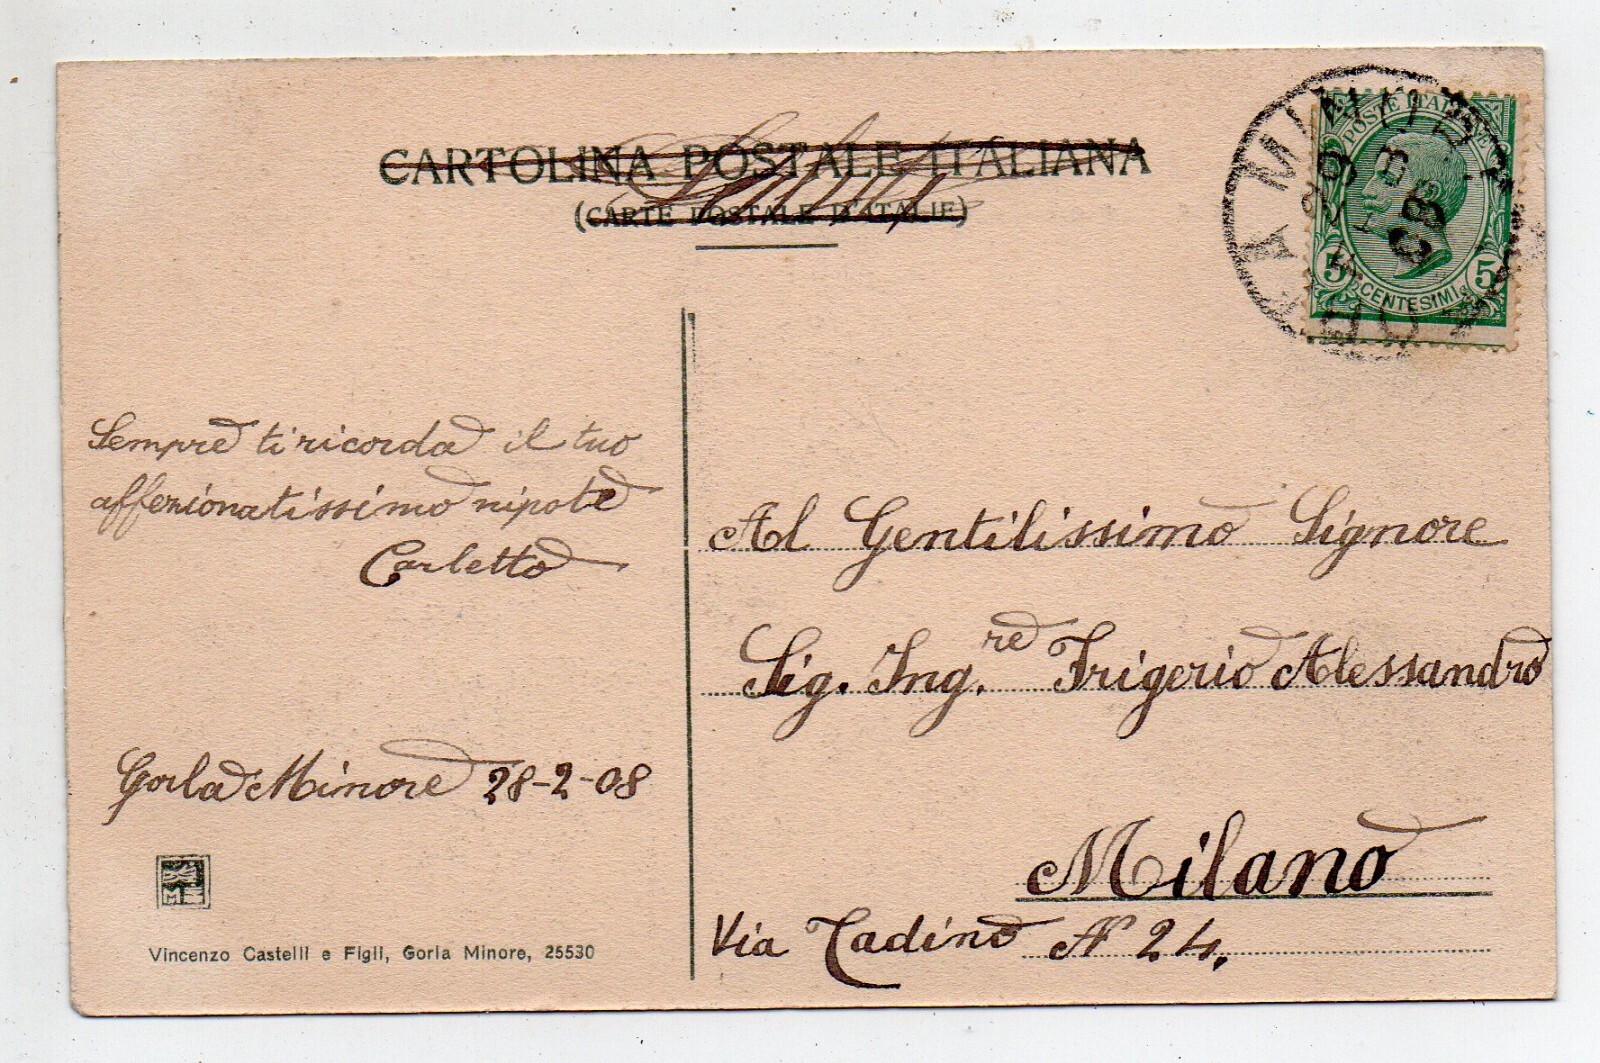 CARTOLINA POSTALE ITALIANA
(CARTE POSTALE D'ITALIE)
POSTE ITALIANE
5 CENTESIMI 5
Sempre ti ricorda il tuo
affezionatissimo nipote
Carletto
Gorla Minore 28-2-08
Vincenzo Castelli e Figli, Gorla Minore, 25530
Al Gentilissimo Signore
Sig. Ing.re Frigerio Alessandro
Milano
Via Tadino N 24.